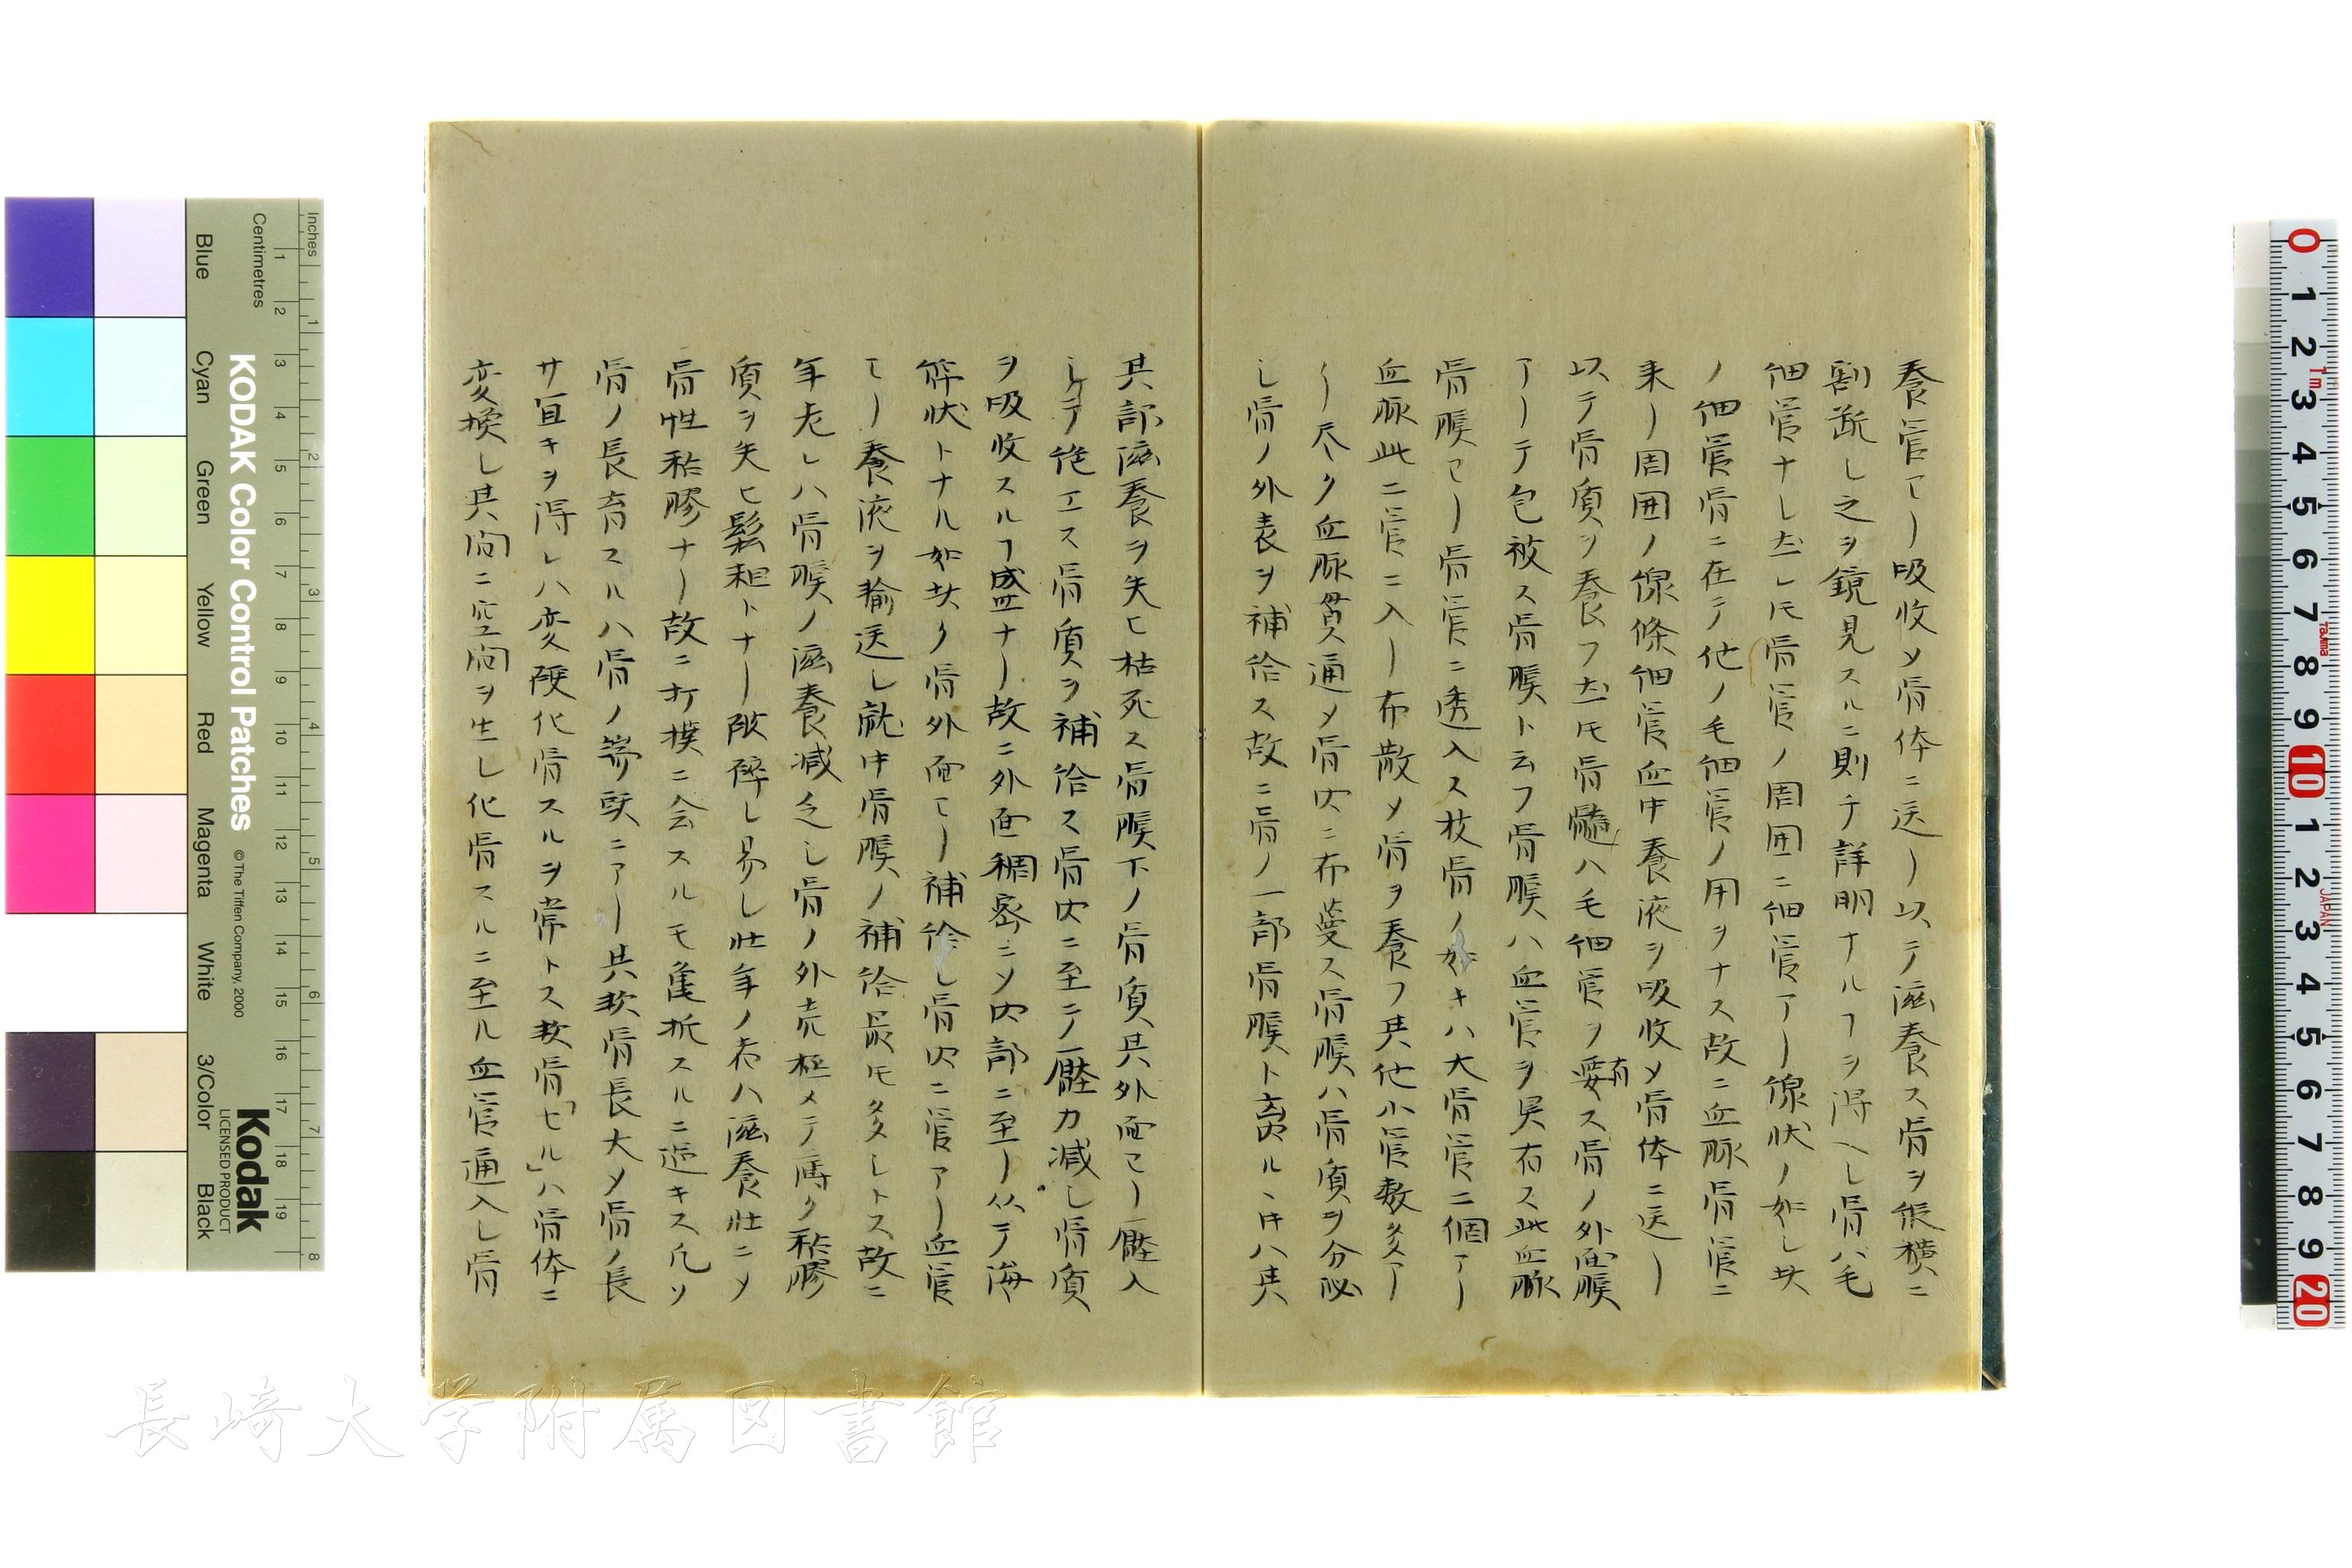 養管ヨリ吸收メ骨体ニ送リ以テ滋養ス骨ヲ縦横ニ
割断シ之ヲ鏡見スルニ則チ詳明ナルヿヲ得ヘシ骨ハ毛
細管ナシ𪜈骨管ノ周囲ニ細管アリ線状ノ如シ此
ノ細管骨ニ在テ他ノ毛細管ノ用ヲナス故ニ血脈骨管ニ
来リ周囲ノ線條細管血中養液ヲ吸收メ骨体ニ送リ
以テ骨質ヲ養フ𪜈骨髄ハ毛細管ヲ有ス骨ノ外面膜
アリテ包被ス骨膜ト云フ骨膜ハ血管ヲ具有ス此血脈
骨膜ヨリ骨管ニ透入ス枝骨ノ如キハ大骨管二個アリ
血脈此ニ管ニ入リ布散メ骨ヲ養フ其他小管数多ア
リ尽ク血脈貫通メ骨内ニ布蔓ス骨膜ハ骨質ヲ分泌
シ骨ノ外表ヲ補給ス故ニ骨ノ一部骨膜ト離ルヽ𪜈ハ其
其部滋養ヲ失ヒ枯死ス骨膜下ノ骨質其外面ヨリ壓入
シテ絶エス骨質ヲ補給ス骨内ニ至テ壓力減シ骨質
ヲ吸收スルヿ盛ナリ故ニ外面稠密ニメ内部ニ至リ以テ海
絆状トナル如此ク骨外面ヨリ補給シ骨内ニ管アリ血管
ヨリ養液ヲ輸送シ就中骨膜ノ補給最モ多シトス故ニ
年老レハ骨膜ノ滋養減乏シ骨ノ外売極メテ薄ク粘膠
質ヲ失ヒ鬆粗トナリ破碎シ易シ壮年ノ者ハ滋養壮ニメ
骨性粘膠ナリ故ニ打撲ニ会スルモ亀折スルニ過キス凡ソ
骨ノ長育スルハ骨ノ端頭ニアリ其軟骨長大メ骨ノ長
サ宜キヲ得レハ変硬化骨スルヲ常トス軟骨「セル」ハ骨体ニ
変換シ其间ニ空间ヲ生シ化骨スルニ至ル血管通入シ骨
Inches
Centimetres
KODAK Color Control Patches
©The Tiffen Company, 2000
Kodak
LICENSED PRODUCT
Blue
Cyan
Green
Yellow
Red
Magenta
White
3/Color
Black
長崎大学附属図書館